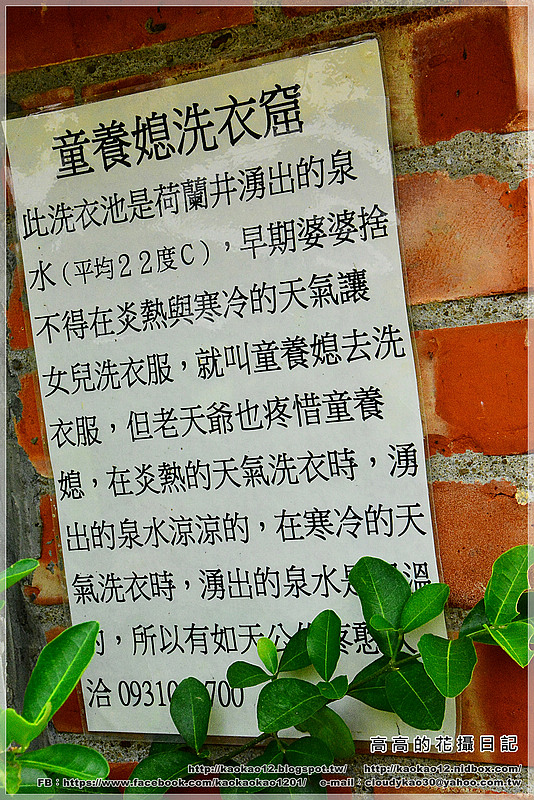 童養媳洗衣窟
此洗衣池是荷蘭井湧出的泉
水(平均22度C)，早期婆婆捨
不得在炎熱與寒冷的天氣讓
女兒洗衣服，就叫童養媳去洗
衣服，但老天爺也疼惜童養
媳，在炎熱的天氣洗衣時，湧
出的泉水涼涼的，在寒冷的天
氣洗衣時，湧出的泉水是溫
的，所以有如天公疼憨
洽 0931 700
高高的花攝日記
http://kaokao12.blogspot.tw/ http://kaokao12.nidbox.com/
FB：https://www.facebook.com/kaokaokao1201/ e-mail：cloudykao30@yahoo.com.tw